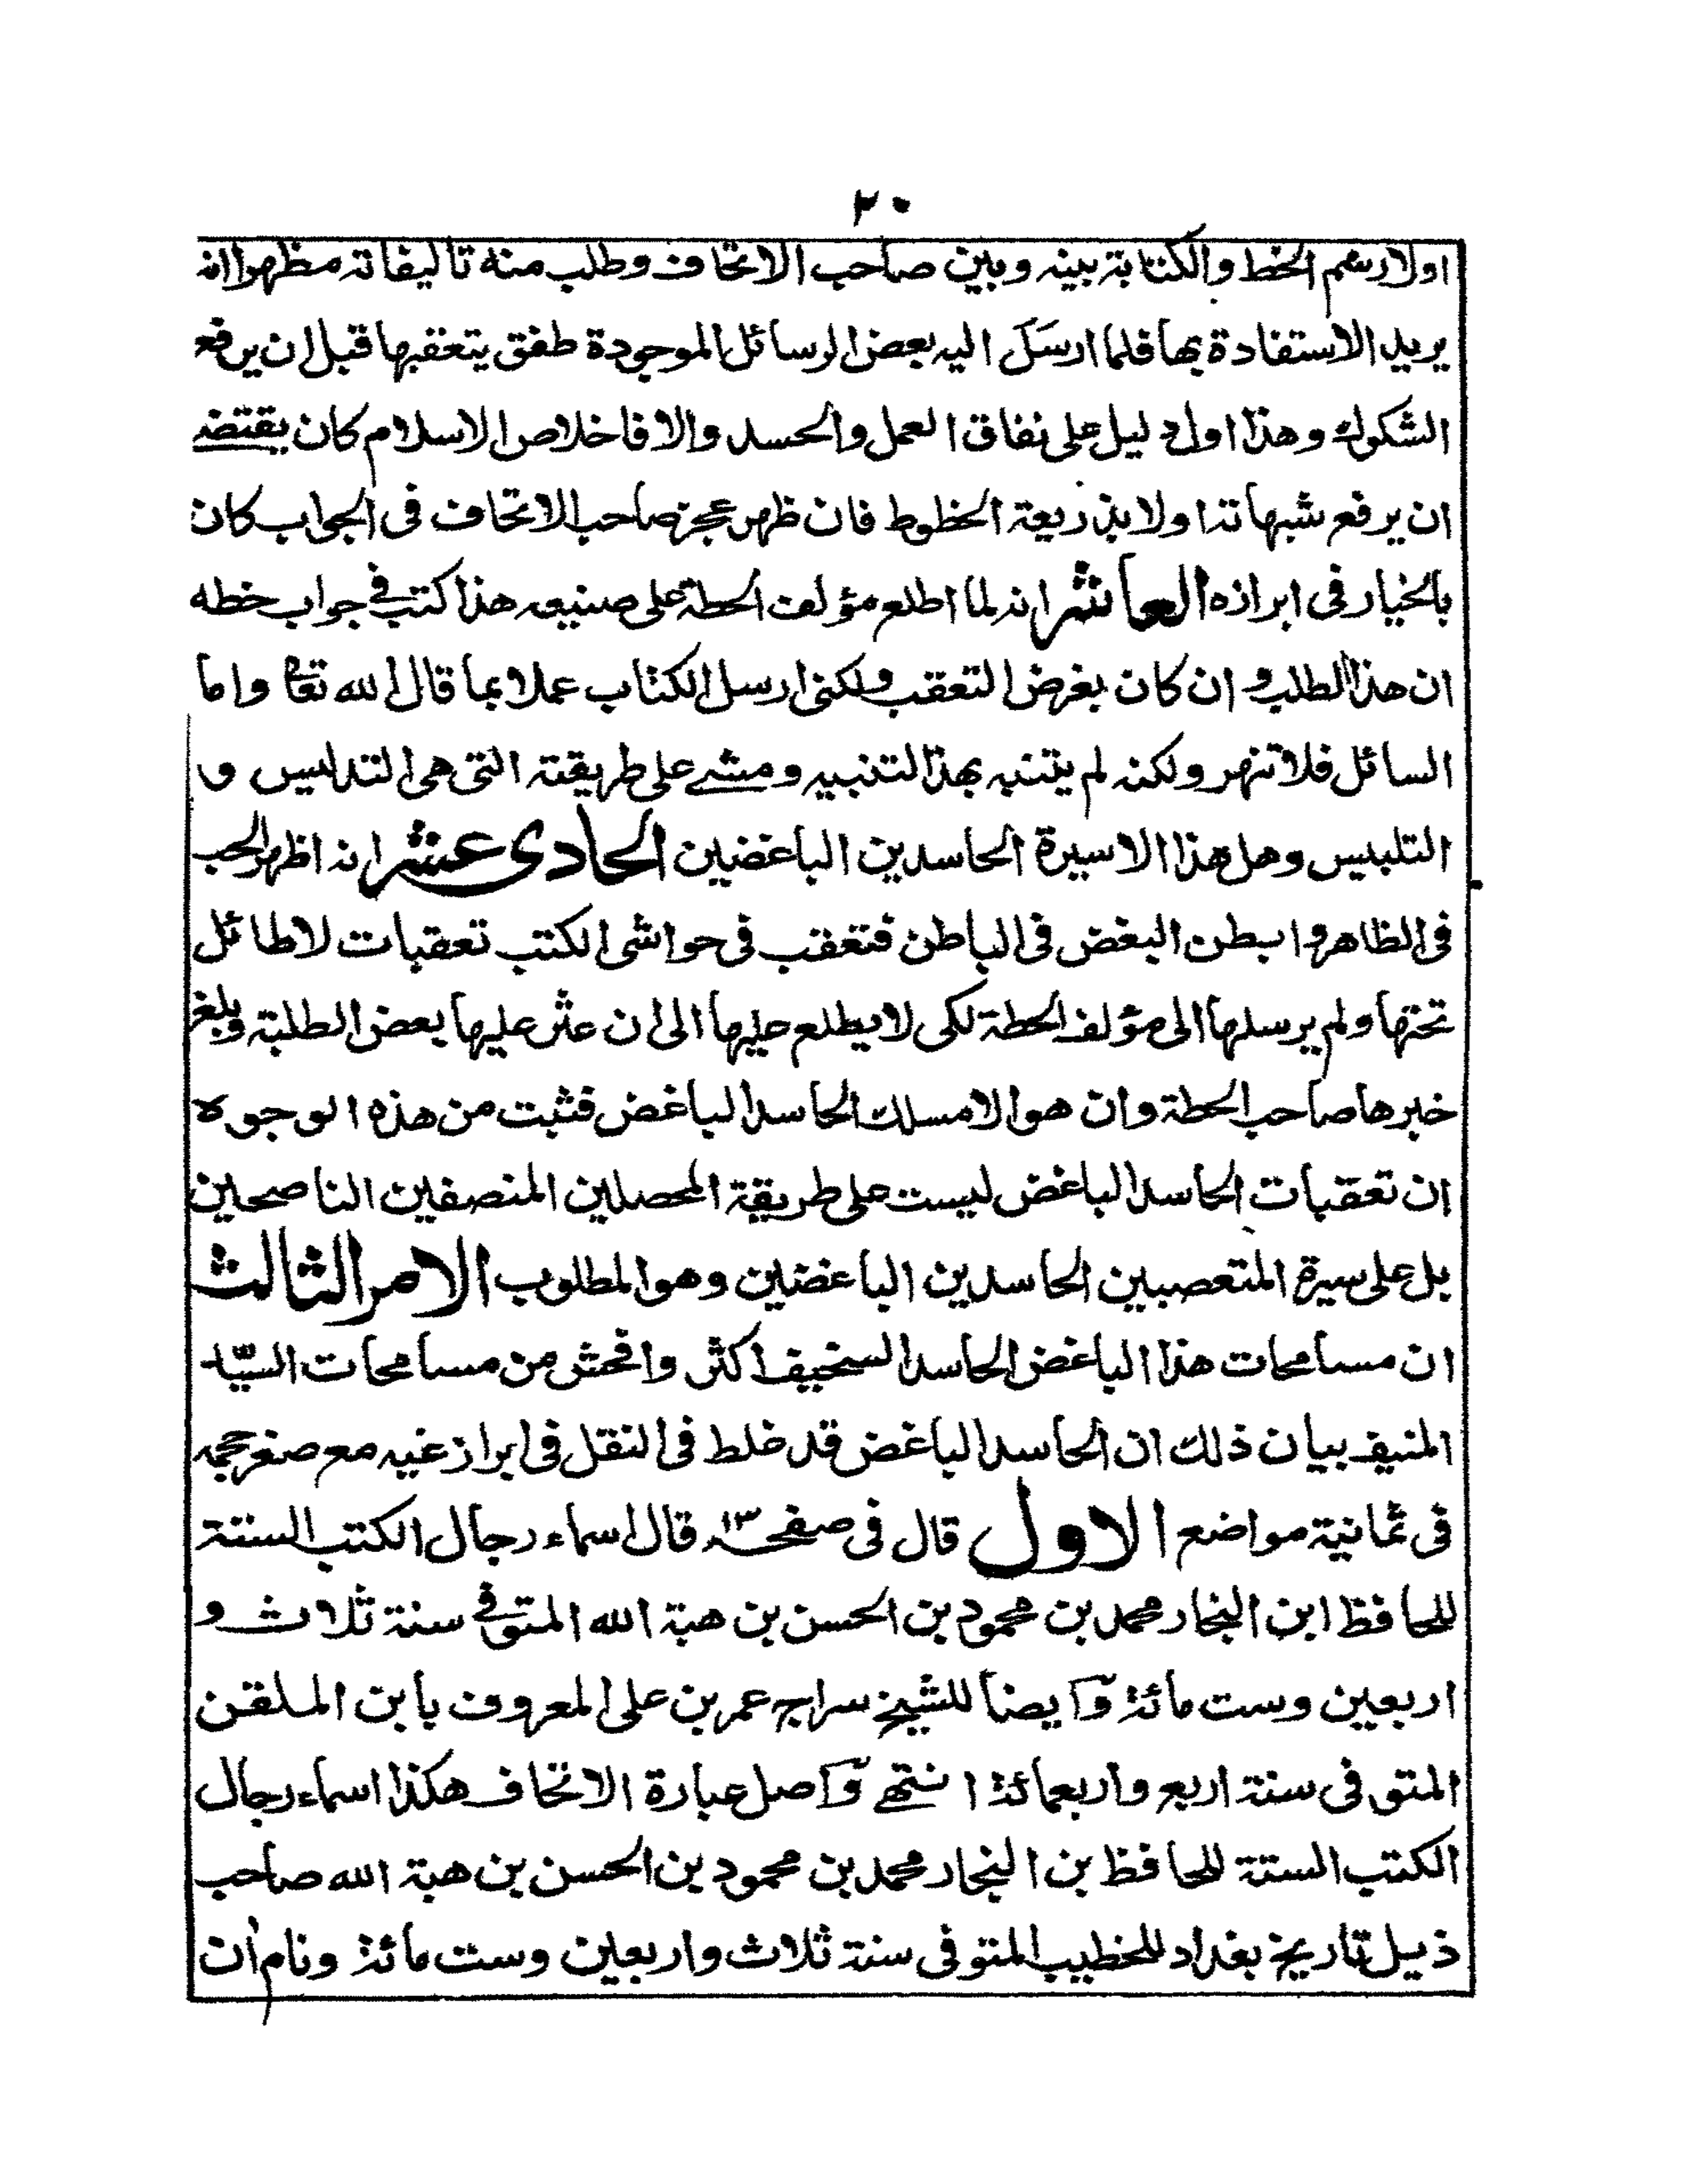 ٢٠
اولا رسم الخط والكتابة بينه وبين صاحب الاتحاف وطلب منه تاليفاته مظهرا انه
يريد الاستفادة بها فلما ارسل اليه بعض الرسائل الموجودة طفق يتعقبها قبل ان يرفع
الشكوك وهذا اول دليل على نفاق العمل والحسد والا فاخلاص الاسلام كان يقتضے
ان يرفع شبهاته اولا بذريعة الخطوط فان ظهر عجز صاحب الاتحاف فى الجواب كان
بالخيار فى ابرازه العاشر انه لما اطلع مؤلف الحطة على صنيعه هذا كتب فے جواب خطه
ان هذا الطلب و ان كان بغرض التعقب ولكنى ارسل الكتاب عملا بما قال الله تعا واما
السائل فلا تنهر ولكنه لم يتنبه بهذا التنبيه ومشے على طريقته التى هى التدليس و
التلبيس وهل هذا الا سيرة الحاسدين الباغضين الحادى عشر انه اظهر الحب
فى الظاهر وابطن البغض فى الباطن فتعقب فى حواشى الكتب تعقبات لا طائل
تحتها ولم يرسلها الى مؤلف الحطة لكى لا يطلع عليها الى ان عثر عليها بعض الطلبة وبلغ
خبرها صاحب الحطة وان هو الا مسلك الحاسد الباغض فثبت من هذه الوجوه
ان تعقبات الحاسد الباغض ليست على طريقة المحصلين المنصفين الناصحين
بل على سيرة المتعصبين الحاسدين الباغضين وهو المطلوب الامر الثالث
ان مسامحات هذا الباغض الحاسد السخيف اكثر وافحش من مسامحات السيّد
المنيف بيان ذلك ان الحاسد الباغض قد غلط فى النقل فى ابراز غيه مع صغر حجمه
فى ثمانية مواضع الاول قال فى صفحه ١٣ قال اسماء رجال الكتب الستة
للحافظ ابن النجار محمد بن محمود بن الحسن بن هبة الله المتوفے سنة ثلاث و
اربعين وست مائة وايضا للشيخ سراج عمر بن على المعروف بابن الملقن
المتوفى سنة اربع واربعمائة انتهے واصل عبارة الاتحاف هكذا اسماء رجال
الكتب الستة للحافظ بن النجار محمد بن محمود بن الحسن بن هبة الله صاحب
ذيل تاريخ بغداد للخطيب المتوفى سنة ثلاث واربعين وست مائة ونام ان